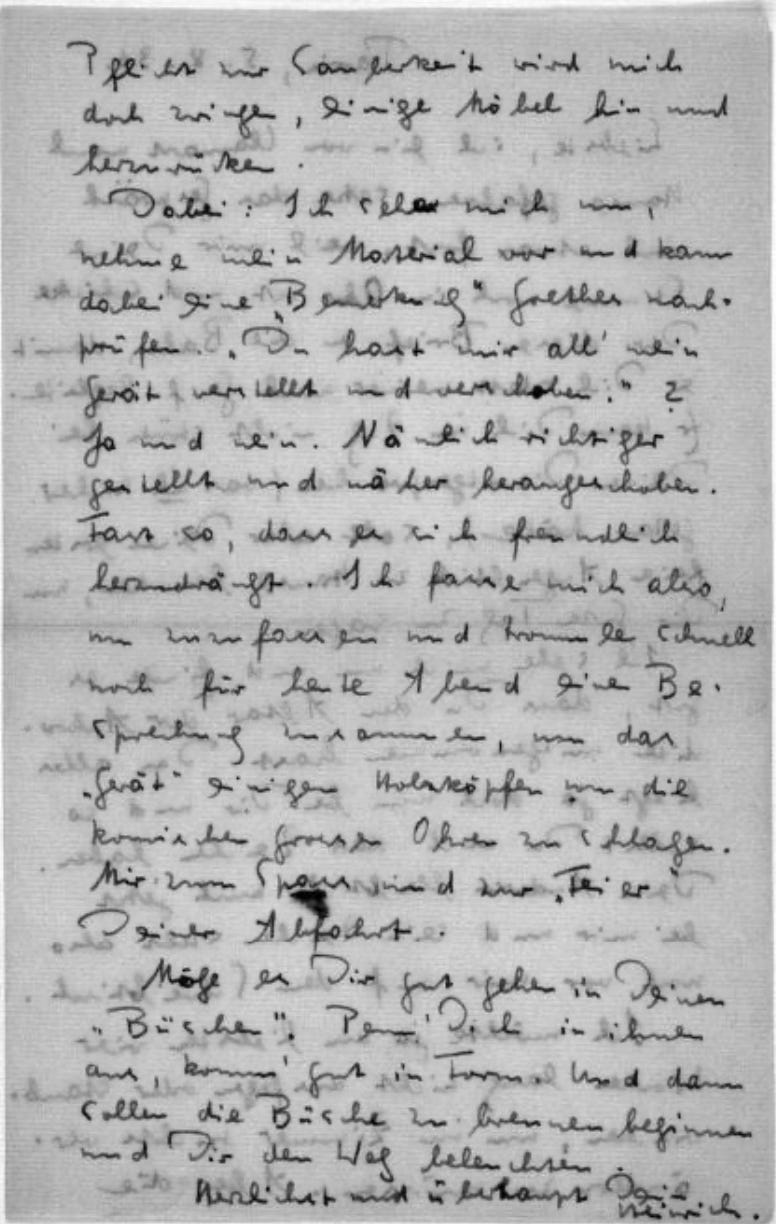 Pflicht zur Sauberkeit wird mich
doch zwingen, einige Möbel hin und
herzurücken.
Dabei: Ich sehe mich um,
nehme mein Material vor und kann
dabei eine „Bemerkung" Goethes nach-
prüfen. „Du hast mir all' mein
Gerät verstellt und verschoben." ?
Ja und nein. Nämlich richtiger
gestellt und näher herangeschoben.
Fast so, dass es sich freundlich
herandrängt. Ich fasse mich also,
um zuzufassen und trommle schnell
noch für heute Abend eine Be-
sprechung zusammen, um das
„Gerät" einigen Holzköpfen um die
komischen grossen Ohren zu schlagen.
Mir zum Spass und zur „Feier"
Deiner Abfahrt.
Möge es Dir gut gehen in Deinen
„Büschen". Penn' Dich in ihnen
aus, komm' gut in Form. Und dann
sollen die Büsche zu brennen beginnen
und Dir den Weg beleuchten.
Herzlichst und überhaupt Dein
Heinrich.